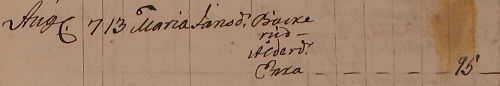 Aug 6. 7 13 Maria Jansd. Backe
rud –
Alderd.
Enka – – – – – – 95